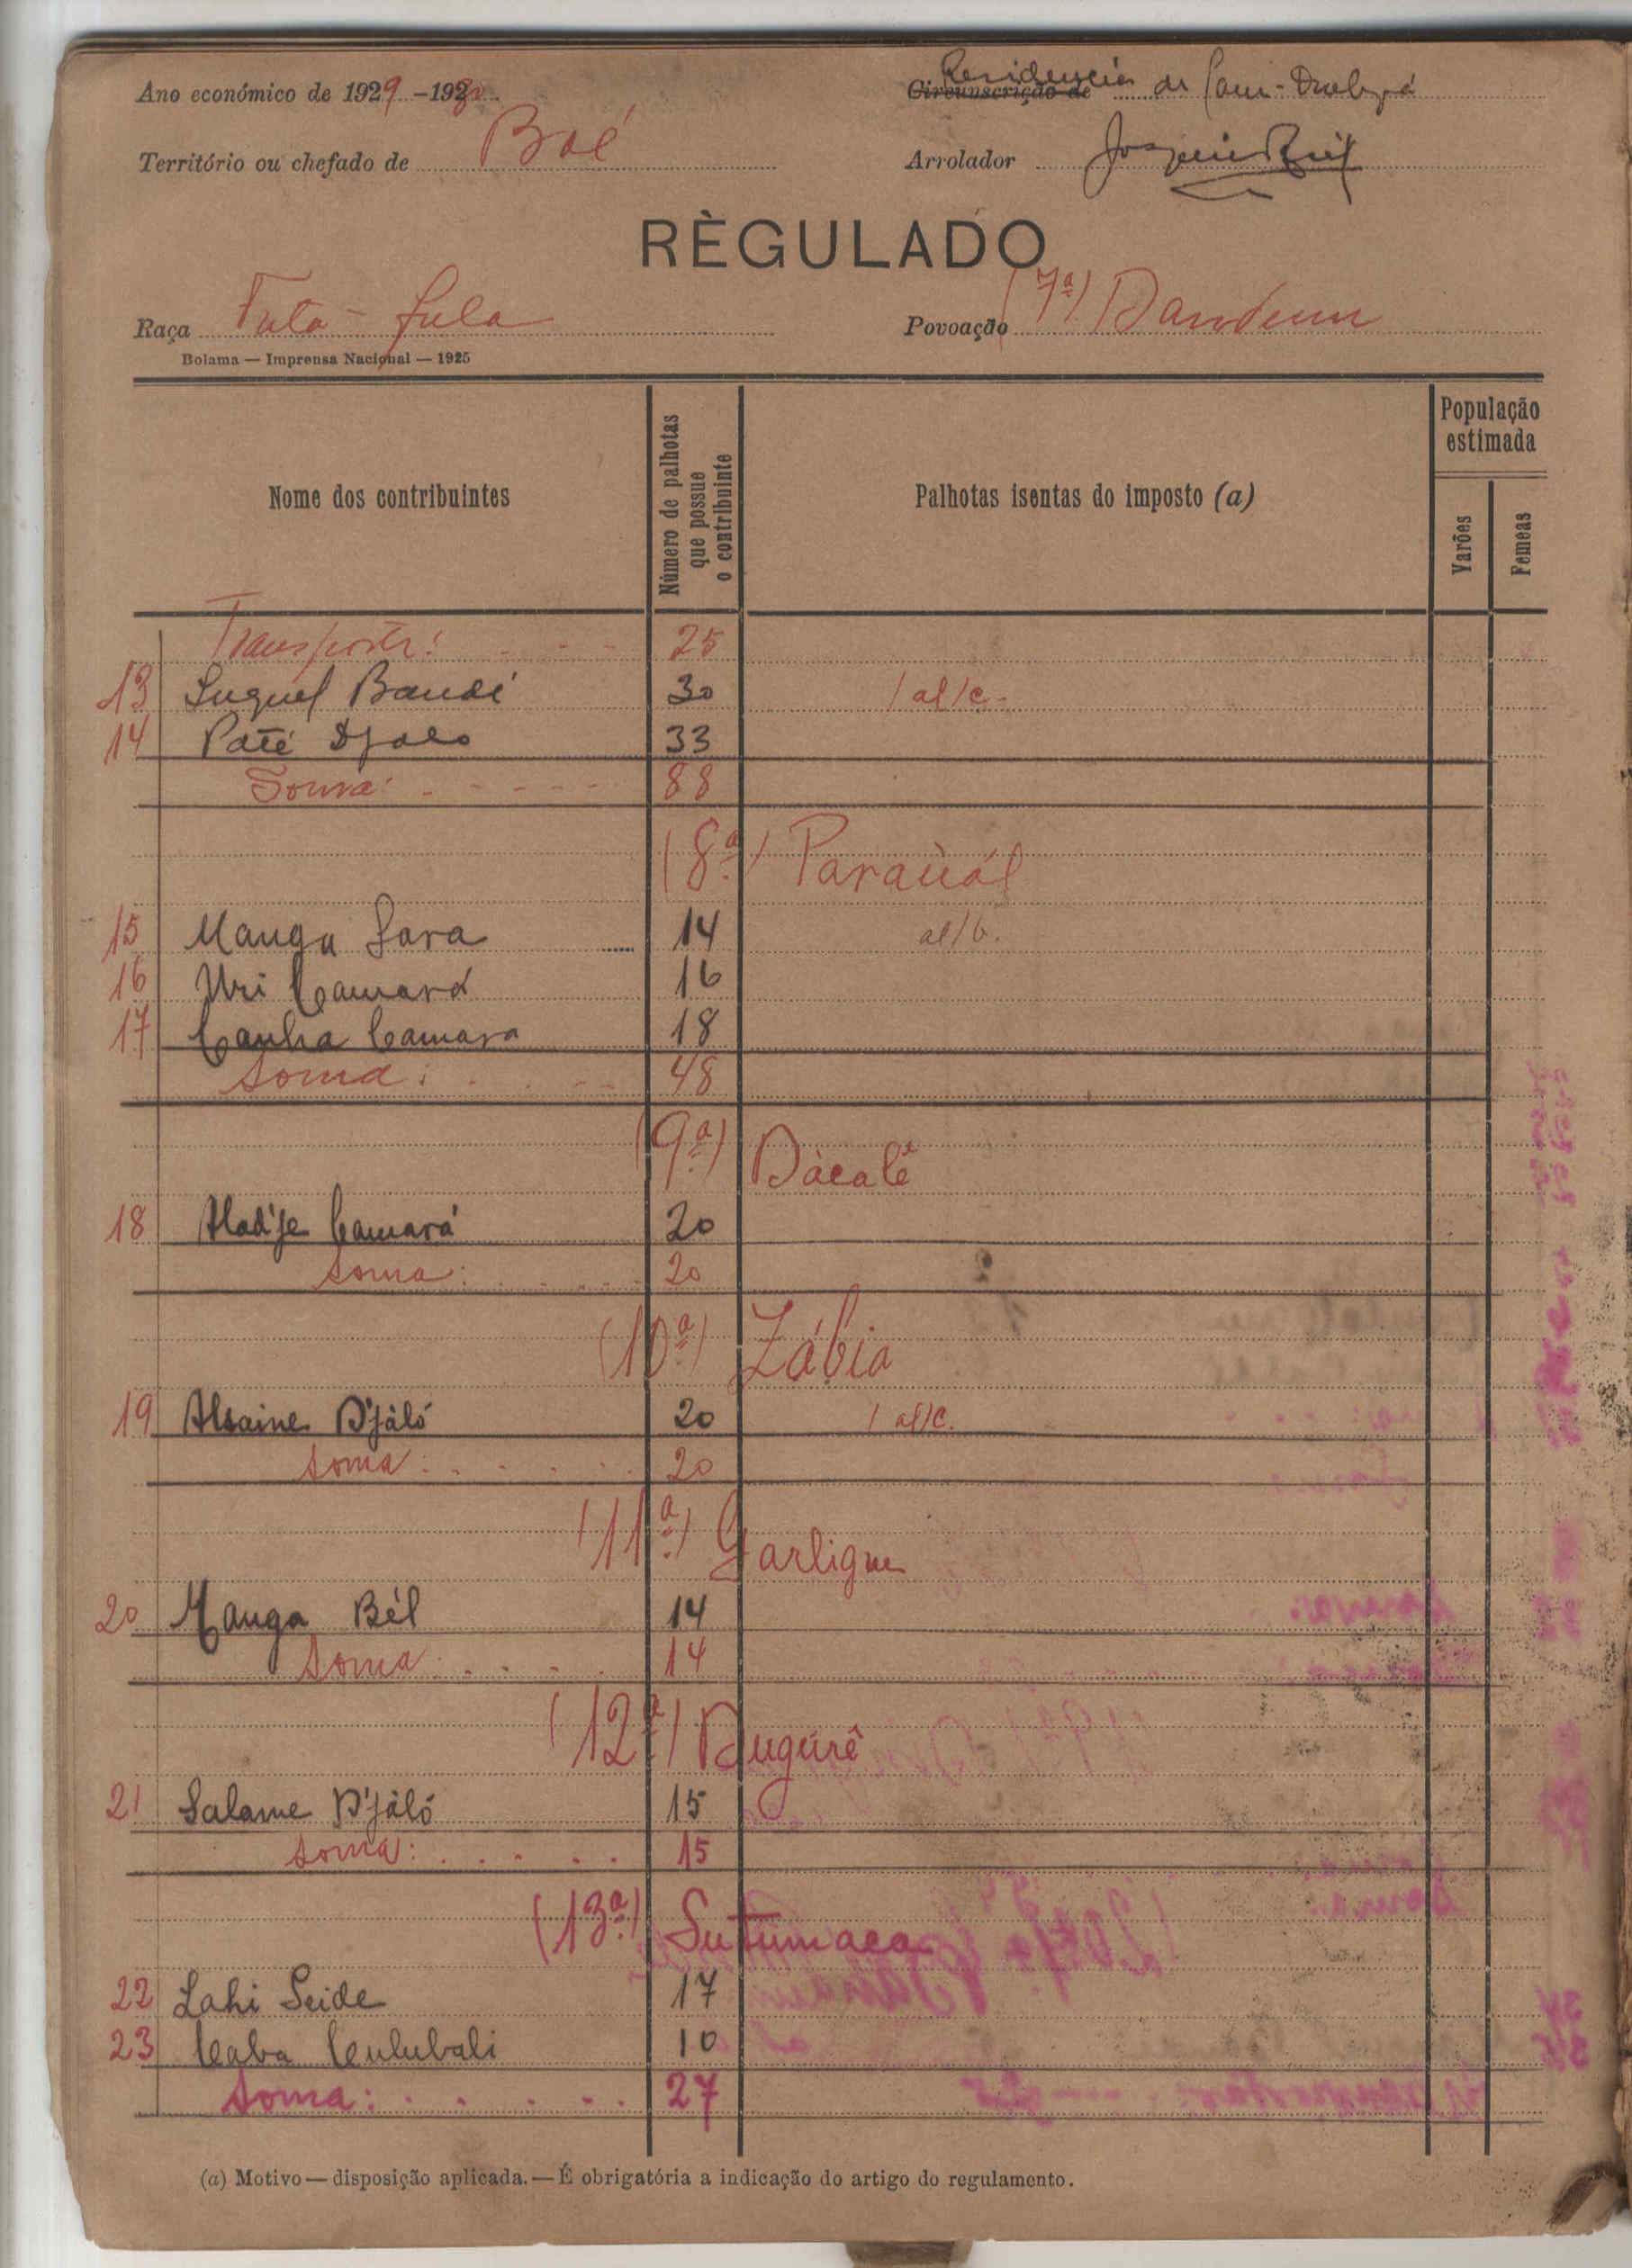 Ano económico de 1929-1930
Residencia de
Circunscrição de
Território ou chefado de Boé
Arrolador
RÈGULADO
Raça Futa-fula
Povoação (7ª) Dandum
Bolama — Imprensa Nacional — 1925
Nome dos contribuintes
Número de palhotas que possue o contribuinte
Palhotas isentas do imposto (a)
População estimada
Varões
Femeas
Transporte: 25
13 Suquel Bandé 30 1 al/c.
14 Paté Djalo 33
Soma: 88
(8ª) Paraùál
15 Manga Sara 14 al/b.
16 Uri Camará 16
17 Canha Camara 18
Soma: 48
(9ª) Dàcalê
18 Alad'je Camará 20
Soma: 20
(10ª) Lábia
19 Alsaine D'jàló 20 1 al/c.
Soma: 20
(11ª) Garligue
20 Manga Bél 14
Soma: 14
(12ª) Dugúrê
21 Salame D'jàló 15
Soma: 15
(13ª) Sutumaca
22 Lahi Seide 17
23 Caba Culubali 10
Soma: 27
(a) Motivo — disposição aplicada. — É obrigatória a indicação do artigo do regulamento.